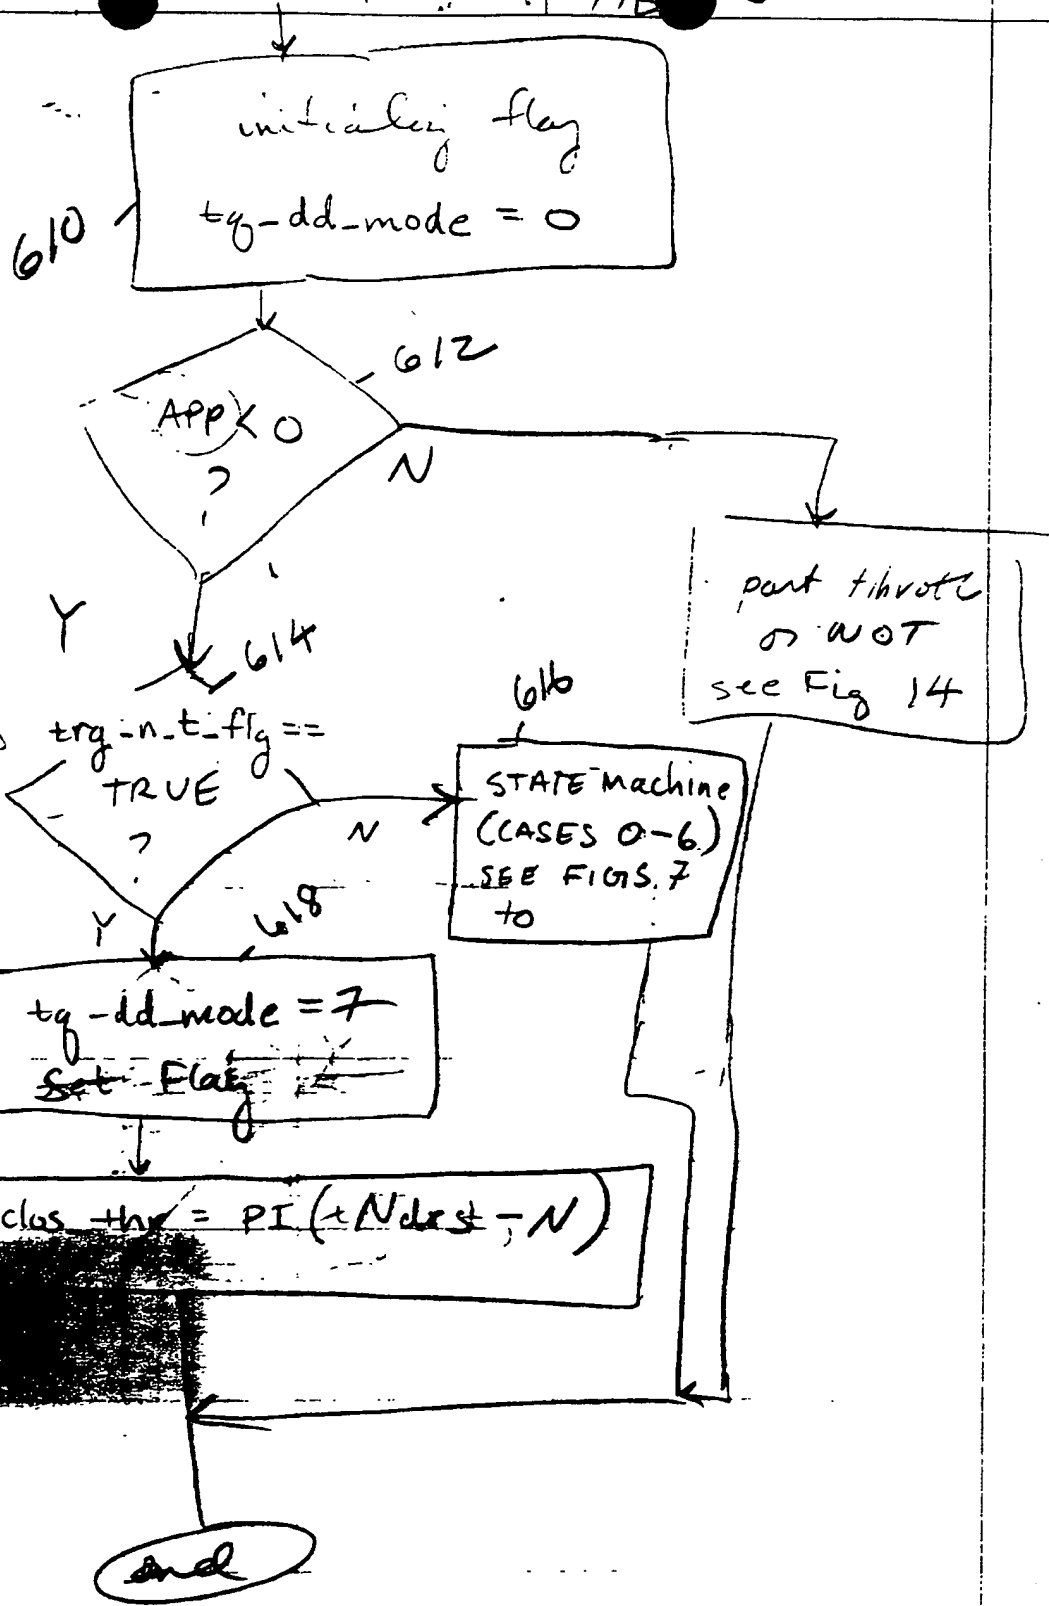 initializing flag
tq-dd-mode = 0
610
612
APP < 0
?
N
Y
614
part tihrottle
or NOT
see Fig 14
616
trg-n-t-flg ==
TRUE
?
N
STATE Machine
(CASES 0-6)
SEE FIGS. 7
to
Y
618
tq-dd-mode = 7
Set Flag
clos_thr = PI (tNdest - N)
end